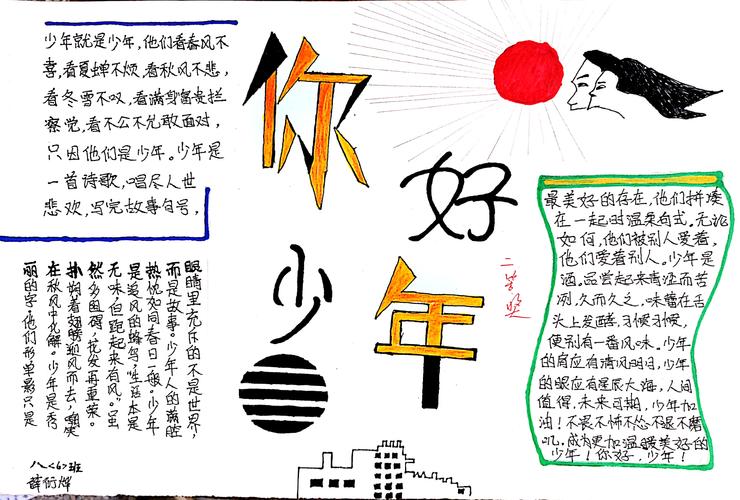 你
好
少
年
少年就是少年,他们看春风不
喜,看夏蝉不烦,看秋风不悲,
看冬雪不叹,看满身富贵拦
察觉,看不公不允敢面对,
只因他们是少年。少年是
一首诗歌,唱尽人世
悲欢,写完故事句号,
眼睛里充斥的不是世界,
而是故事。少年人的满腔
热忱如同春日一般。少年
是追风的蜂鸟,生活本是
无味,但跑起来有风。虽
然多阻碍,花发再重荣。
扑着翅膀迎风而去,嘲笑
在秋风中化解。少年是秀
丽的字,他们形单影只是
最美好的存在,他们拼凑
在一起时温柔句式。无论
如何,他们被别人爱着,
他们爱着别人。少年是
酒。品尝起来青涩而苦
冽,久而久之,味蕾在舌
头上发酵,习候习候,
便别有一番风味。少年
的肩应有清风明月,少年
的眼应有星辰大海,人间
值得,未来可期,少年加
油!不畏不怖不怂不退不磨
叽。成为更加温暖最美好的
少年!你好,少年!
二等奖
八<6>班